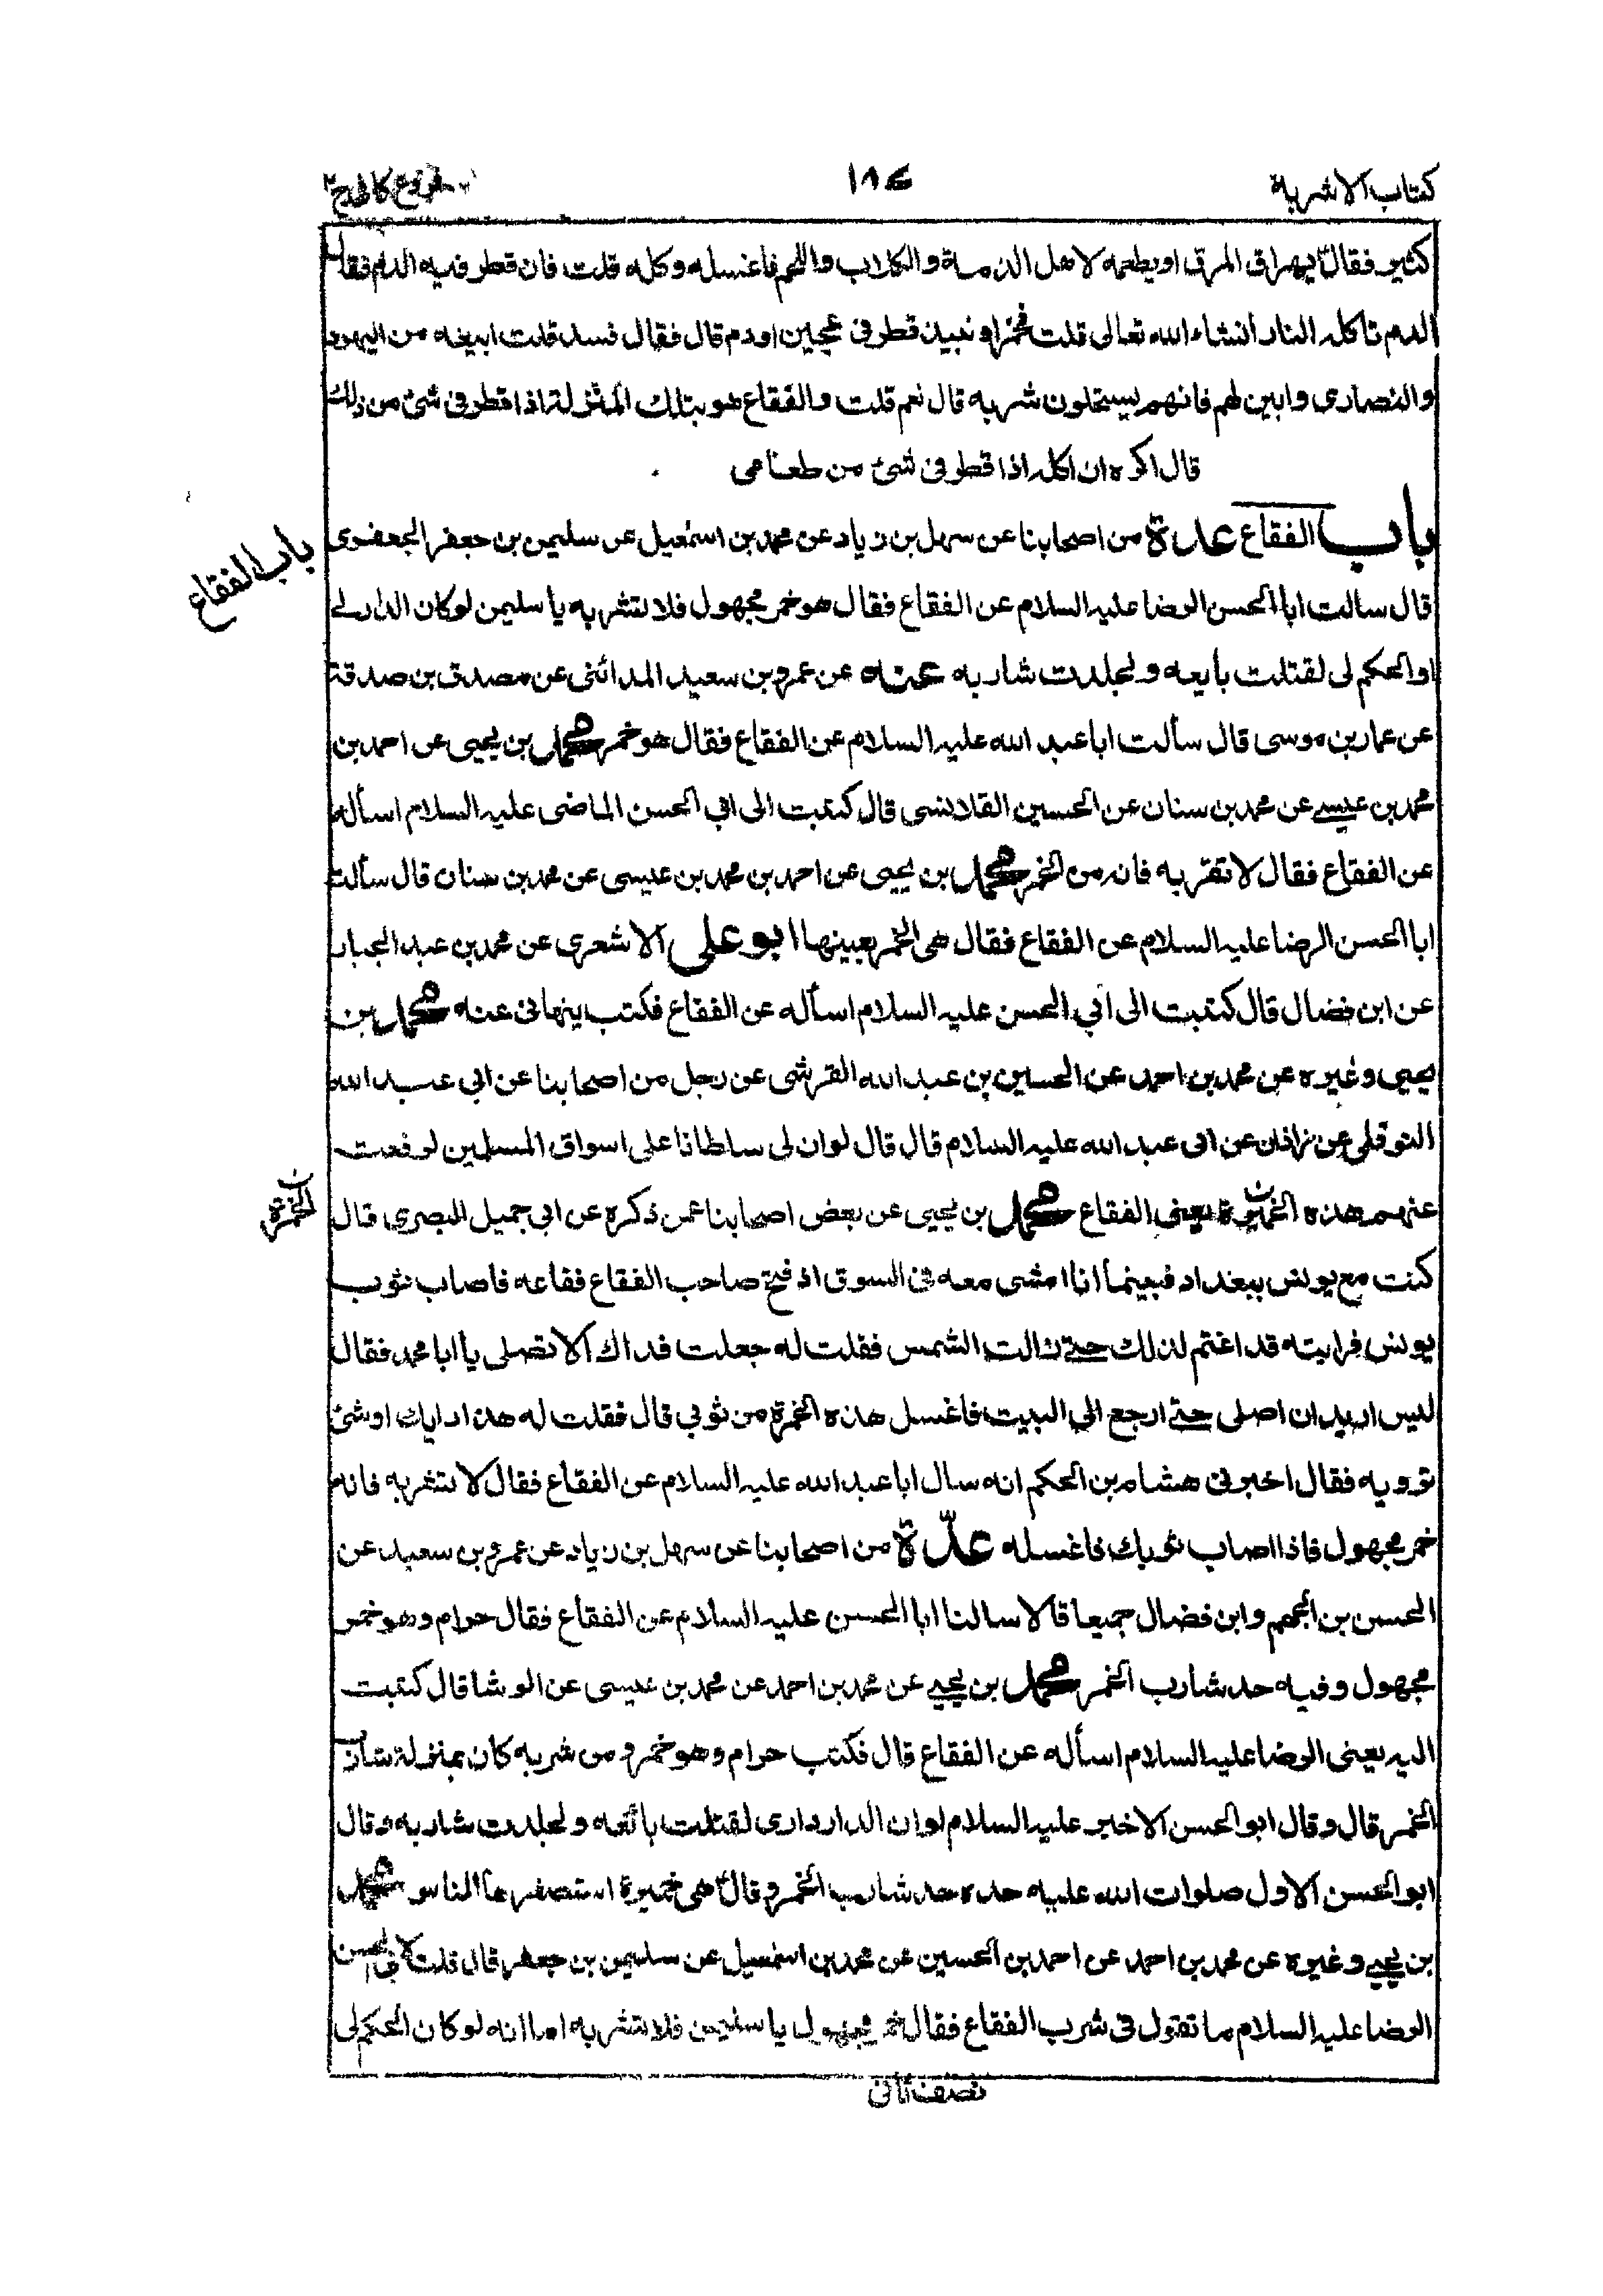 كتاب الاشربة
١٨٤
فروع كافى ج٢
كثير فقال يهراق المرق او يطعمه لاهل الذمة والكلاب واللحم فاغسله وكله قلت فان قطر فيه الدم فقال
الدم تاكله النار انشاء الله تعالى قلت فخمر او نبيذ قطر فى عجين او دم قال فقال فسد قلت ابيعه من اليهود
والنصارى وابين لهم فانهم يستحلون شربه قال نعم قلت والفقاع هو بتلك المنزلة اذا قطر فى شئ من ذلك
قال اكره ان اكله اذا قطر فى شئ من طعامى
باب الفقاع عدة من اصحابنا عن سهل بن زياد عن محمد بن اسمعيل عن سليمن بن جعفر الجعفرى
باب الفقاع
قال سالت ابا الحسن الرضا عليه السلام عن الفقاع فقال هو خمر مجهول فلا تشربه يا سليمن لو كان الدار لے
او الحكم لى لقتلت بأيعه ولجلدت شاربه عنه عن عمرو بن سعيد المدائنى عن مصدق بن صدقة
عن عمار بن موسى قال سألت ابا عبد الله عليه السلام عن الفقاع فقال هو خمر محمد بن يحيى عن احمد بن
محمد بن عيسے عن محمد بن سنان عن الحسين القلانسى قال كتبت الى ابى الحسن الماضى عليه السلام اسأله
عن الفقاع فقال لا تقربه فانه من الخمر محمد بن يحيى عن احمد بن محمد بن عيسى عن محمد بن سنان قال سألت
ابا الحسن الرضا عليه السلام عن الفقاع فقال هى الخمر بعينها ابو على الاشعرى عن محمد بن عبد الجبار
عن ابن فضال قال كتبت الى ابي الحسن عليه السلام اسأله عن الفقاع فكتب ينهانى عنه محمد بن
يحيى وغيره عن محمد بن احمد عن الحسين بن عبد الله القرشى عن رجل من اصحابنا عن ابى عبد الله
النوفلى عن زاذان عن ابى عبد الله عليه السلام قال قال لو ان لى سلطانا على اسواق المسلمين لرفعت
عنهم هذه الخميرة يعنى الفقاع محمد بن يحيى عن بعض اصحابنا عمن ذكره عن ابى جميل البصرى قال
الخمرة ن
كنت مع يونس ببغداد فبينما انا امشى معه فى السوق اذ فتح صاحب الفقاع فقاعه فاصاب ثوب
يونس فرايته قد اغتم لذلك حتے زالت الشمس فقلت له جعلت فداك الا تصلى يا ابا محمد فقال
ليس اريد ان اصلى حتے ارجع الى البيت فاغسل هذه الخمرة من ثوبي قال فقلت له هذا رايك او شئ
ترويه فقال اخبرنى هشام بن الحكم انه سال ابا عبد الله عليه السلام عن الفقاع فقال لا تشربه فانه
خمر مجهول فاذا اصاب ثوبك فاغسله عدّة من اصحابنا عن سهل بن زياد عن عمرو بن سعيد عن
الحسن بن الجهم وابن فضال جميعا قالا سالنا ابا الحسن عليه السلام عن الفقاع فقال حرام وهو خمر
مجهول وفيه حد شارب الخمر محمد بن يحيے عن محمد بن احمد عن محمد بن عيسى عن الوشا قال كتبت
اليه يعنى الرضا عليه السلام اسأله عن الفقاع قال فكتب حرام وهو خمر ومن شربه كان بمنزلة شارب
الخمر قال وقال ابو الحسن الاخير عليه السلام لو ان الدار دارى لقتلت بائعه ولجلدت شاربه وقال
ابو الحسن الاول صلوات الله عليه حده حد شارب الخمر وقال هى خميرة استصغرها الناس محمد
بن يحيے وغيره عن محمد بن احمد عن احمد بن الحسين عن محمد بن اسمعيل عن سليمن بن جعفر قال قلت لابى الحسن
الرضا عليه السلام ما تقول فى شرب الفقاع فقال خمر مجهول يا سليمن فلا تشربه اما انه لو كان الحكم لى
نصف ثانى